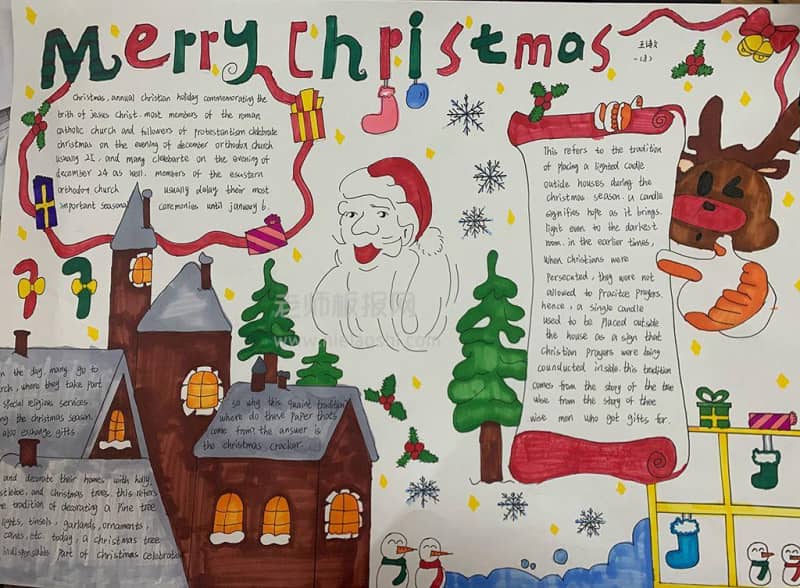 Merry Christmas
王诗文
Christmas, annual christian holiday commemorating the
brith of jeses christ. most members of the roman
catholic church and followers of protestantism clebrate
christmas on the evening of december orthodox church
usually 25, and many clebbarte on the evening of
december 24 as well. members of the eastern
orthodox church usually delay their most
important seasonal ceremonies until january 6.
This refers to the tradition
of placing a lighted cadle
outside houses during the
christmas season. a candle
signifies hope as it brings.
light even to the darkest
room. in the earlier times,
When christians were
persecuted, they were not
allowed to practice prayers.
hence, a single candle
used to be placed outside
the house as a sign that
christian prayers were being
counducted inside. this tradition
comes from the story of the tree
wise from the story of three
wise men who got gifts for.
老师板报网
the day, many go to
where they take part
special religious services.
the christmas season.
also exchange gifts
so why this quaint tradition
where do these paper thats
come from? the answer is
the christmas cracker.
and decorate their homes with holly,
and christmas trees. this refers
tradition of decorating a pine tree
lights, tinsels, garlands, ornaments,
canes, etc. today, a christmas tree
indispensable part of christmas celebration